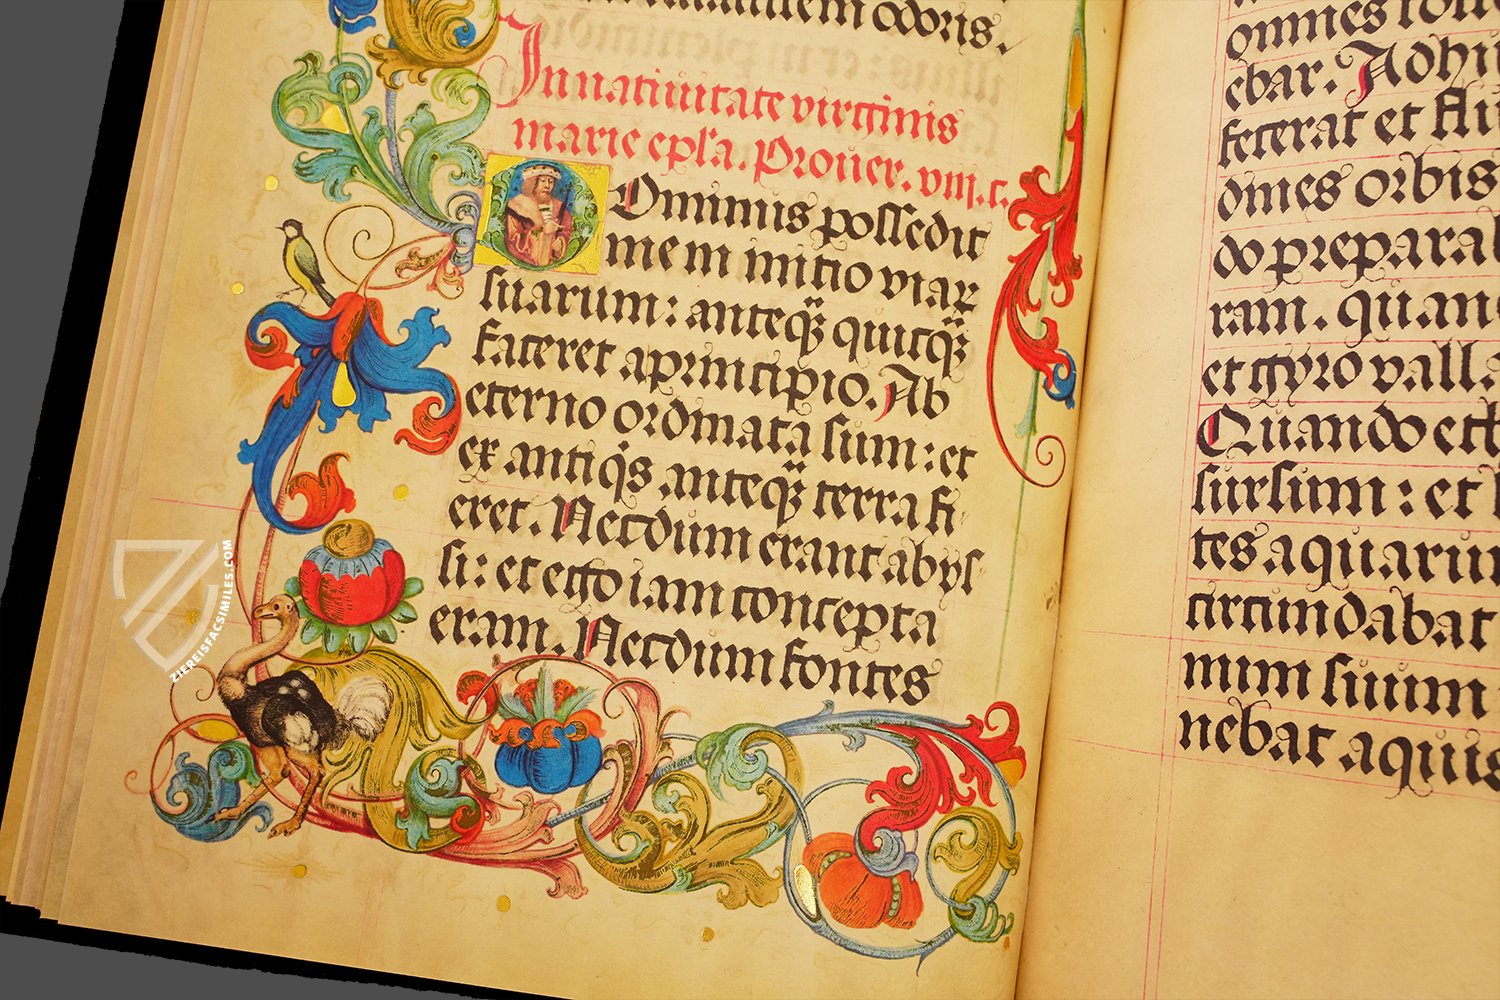 odoris.
In natiuitate virginis
marie epl'a. Prouer. viij. c.
Dominus possedit
me in initio viaꝝ
suarum: anteqꝫ quicqꝫ
faceret a principio. Ab
eterno ordinata sum: et
ex antiqͥs anteqꝫ terra fi
eret. Necdum erant abys
si: et ego iam concepta
eram. Necdum fontes
omnes
ebat. Adhu
fecerat et flu
dines orbis
do prepara
ram. quan
et gyro vall
Quando eth
sursum: et l
tes aquarum
circundabat
mum suum
nebat aquis
ZIEREISFACSIMILES.COM